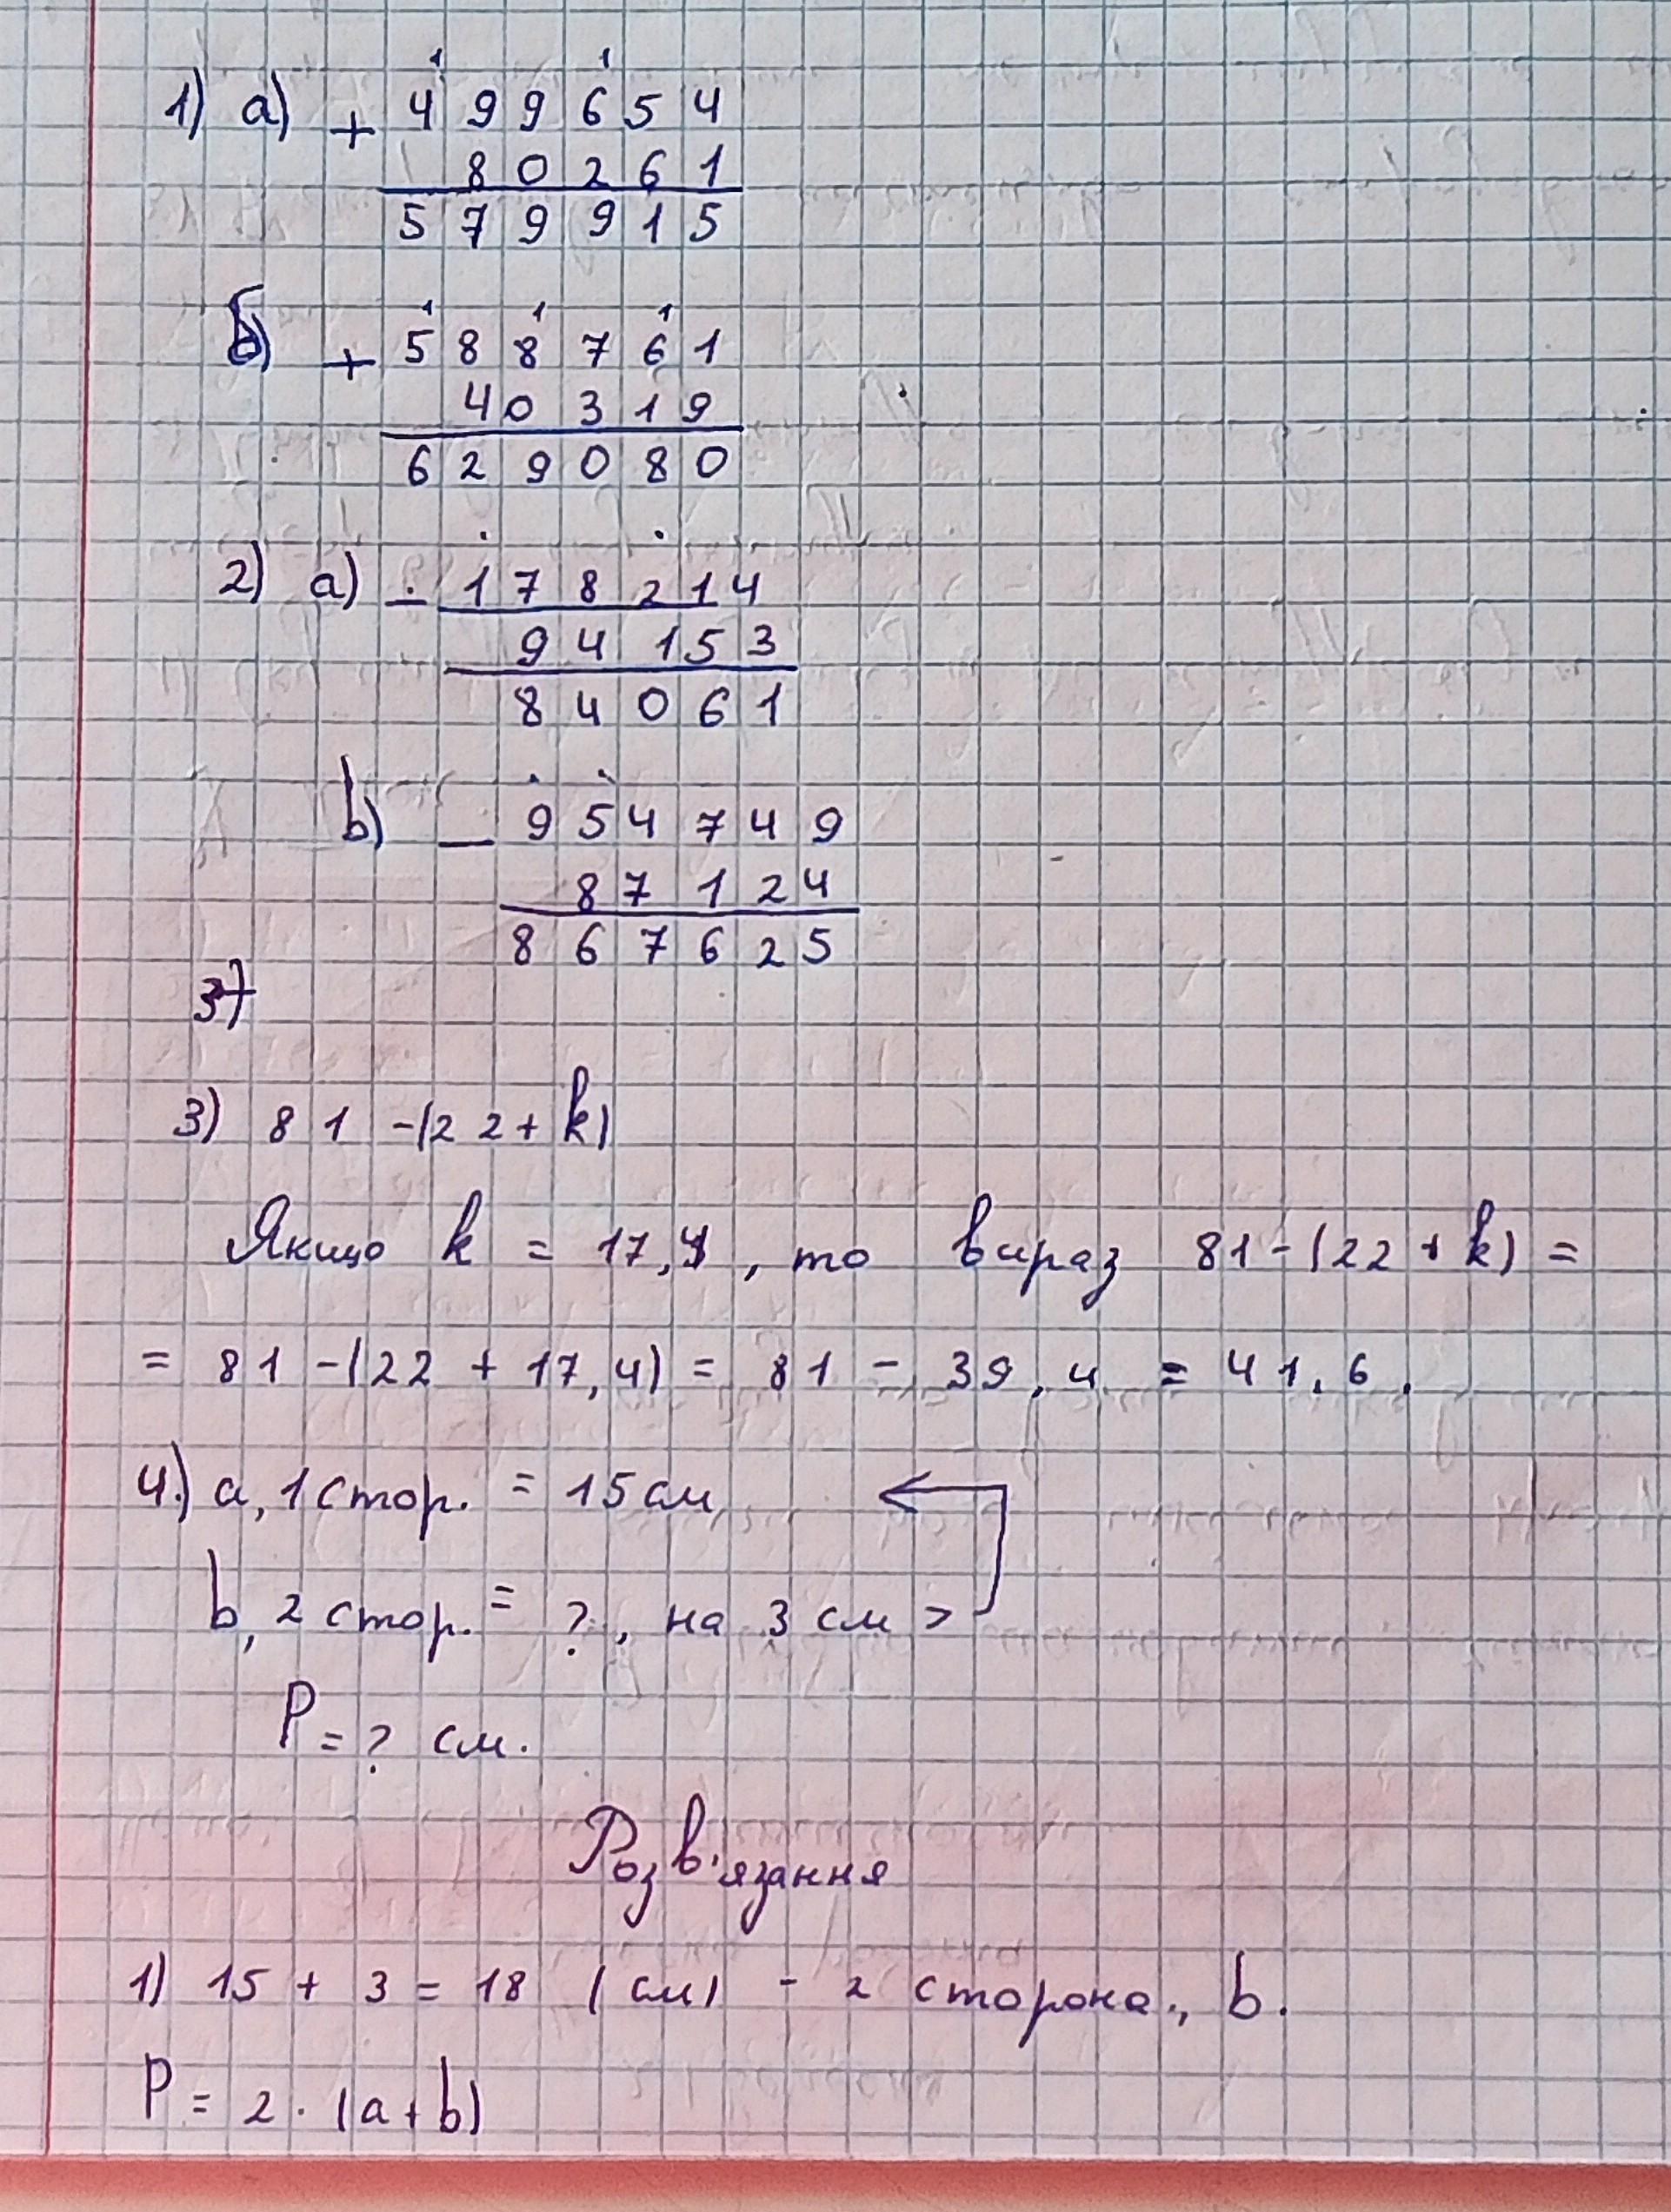 1) а) + 499654
80261
579915
б) + 588761
40319
629080
2) а) - 178214
94153
84061
b) - 954749
87124
867625
3)
3) 81 - (22 + k)
Якщо k = 17,4, то вираз 81 - (22 + k) =
= 81 - (22 + 17,4) = 81 - 39,4 = 41,6.
4.) a, 1 стор. = 15 см
b, 2 стор. = ?, на 3 см >
P = ? см.
Розв'язання
1) 15 + 3 = 18 (см) - 2 сторона., b.
P = 2 · (a + b)